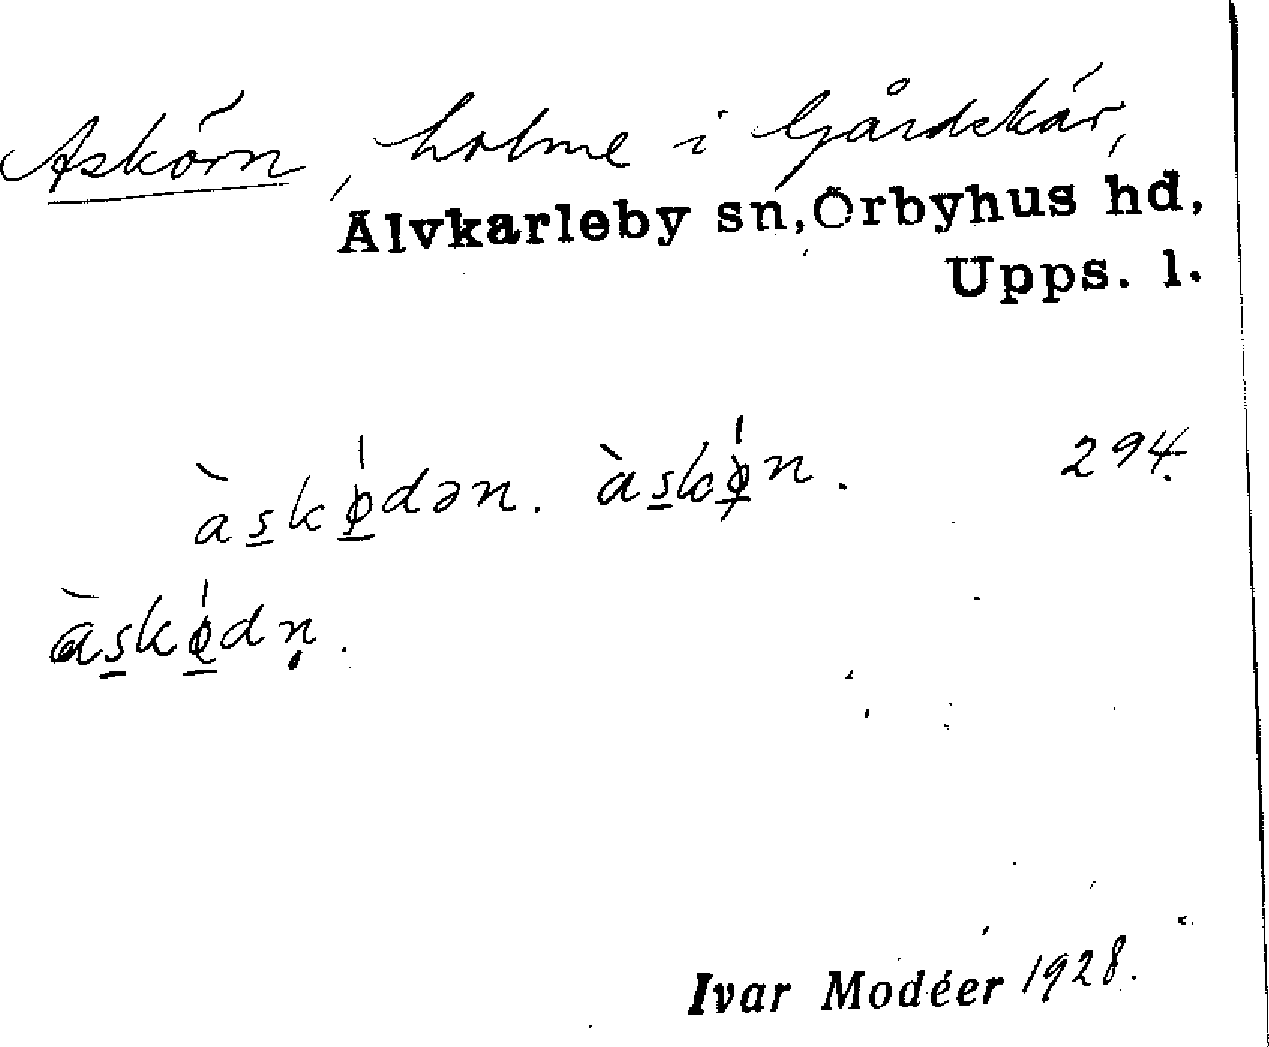 Askörn, holme i Gårdskär,
Älvkarleby sn, Örbyhus hd,
Upps. l.
às̱kǿ̱dən. às̱kǿ̱n. 294.
às̱kǿ̱dṇ.
Ivar Modéer 1928.